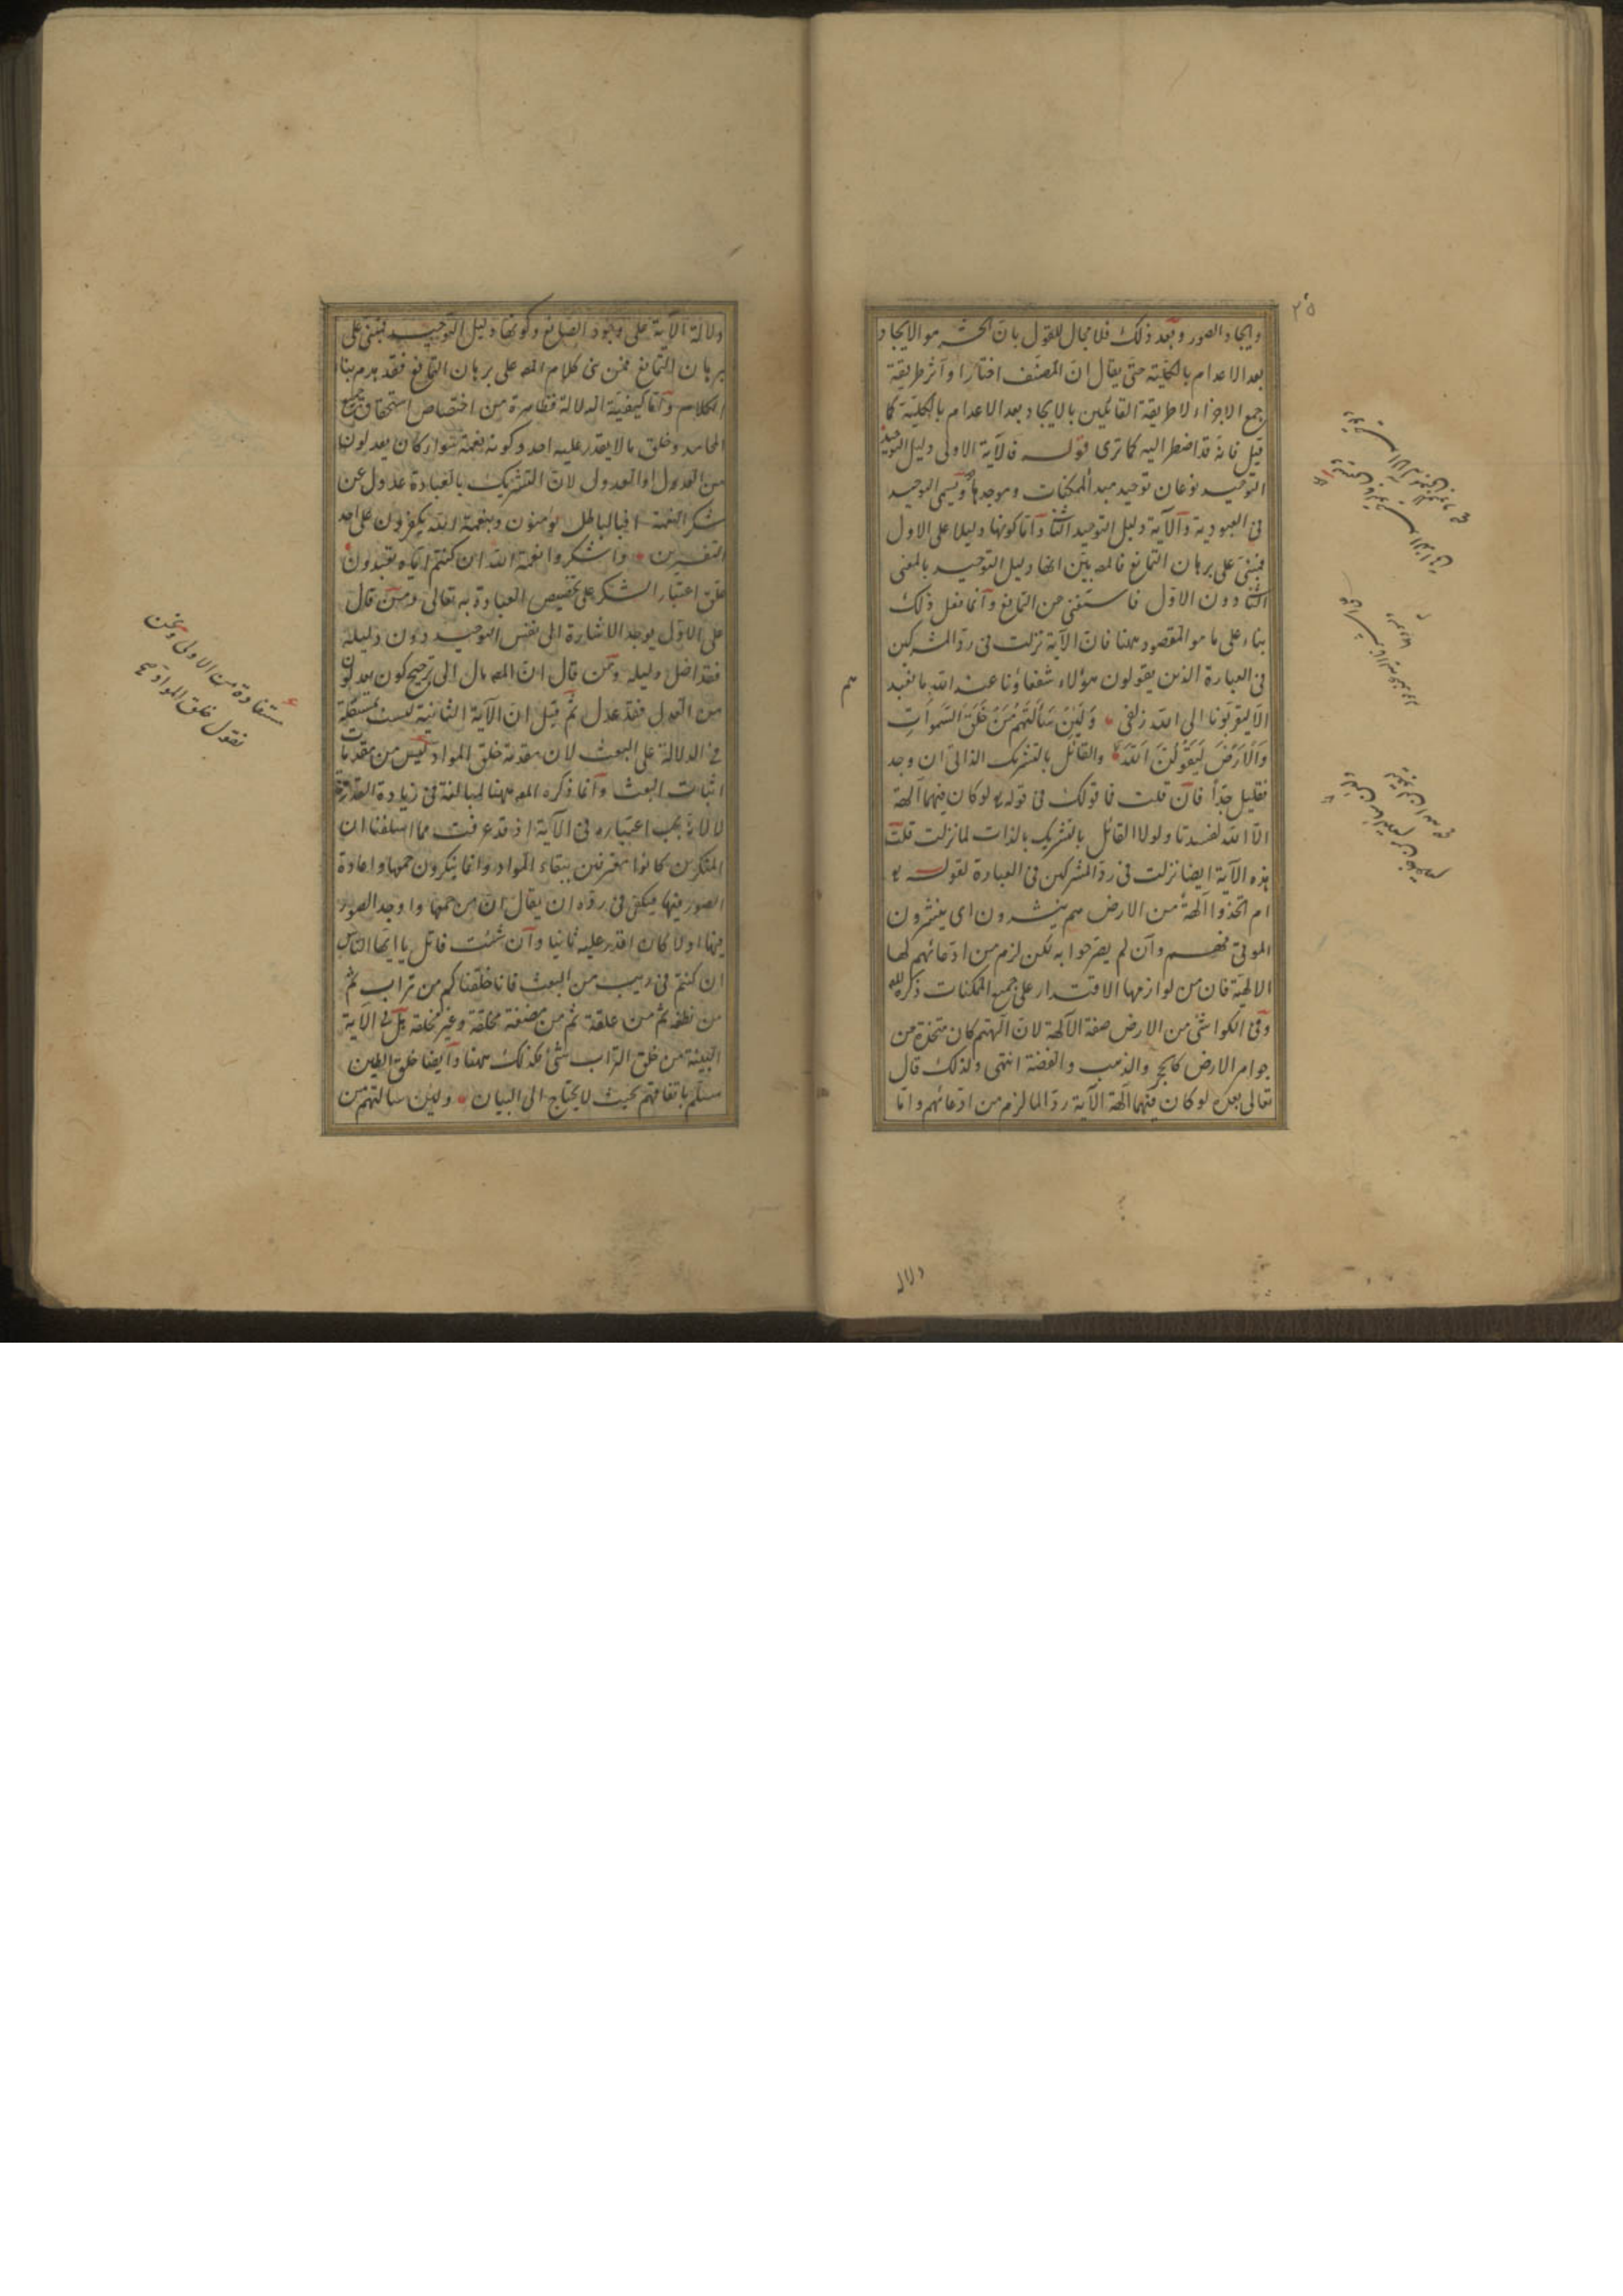 ٢٥
وايجاد الصور وبعد ذلك فلا مجال للقول بان الحشر هو الايجاد
بعد الاعدام بالكلية حتى يقال ان المصنف اختار او آثر طريقة
جمع الاجزاء لا طريقة القائلين بالايجاد بعد الاعدام بالكلية كما
قيل فانه قد اضطر اليه كما ترى قوله فالآية الاولى دليل التوحيد
التوحيد نوعان توحيد مبدأ الممكنات وموجدها ويسمى التوحيد
فى العبودية والآية دليل التوحيد الثانى وآما كونها دليلا على الاول
فمبنى على برهان التمانع فالمص بيّن انها دليل التوحيد بالمعنى
الثانى دون الاول فاستغنى عن التمانع وآنما فعل ذلك
بناء على ما هو المقصود ههنا فان الآية نزلت فى ردّ المشركين
فى العبادة الذين يقولون هؤلاء شفعاؤنا عند الله ما نعبد
هم
الا ليقربونا الى الله زلفى وَلَئِنْ سَأَلْتَهُمْ مَنْ خَلَقَ السَّموَاتِ
وَالْاَرْضَ لَيَقُولُنَّ اللّٰهُ والقائل بالتشريك الذاتى ان وجد
فقليل جدّا فان قلت فما قولك فى قوله تع لو كان فيهما آلهة
الا الله لفسدتا ولولا القائل بالتشريك بالذات لما نزلت قلت
هذه الآية ايضا نزلت فى ردّ المشركين فى العبادة لقوله تع
ام اتخذوا آلهة من الارض هم ينشرون اى ينشرون
الموتى فهم وآن لم يصرحوا به لكن لزم من ادعائهم لها
الالهية فان من لوازمها الاقتدار على جميع الممكنات ذكره
وفى الكواشى من الارض صفة الآلهة لان آلهتهم كان متخذة من
جواهر الارض كالحجر والذهب والفضة انتهى ولذلك قال
تعالى بعده لو كان فيهما آلهة الآية ردّا لما لزم من ادعائهم واما
دلالة
دلالة الآية على وجود الصانع وكونها دليل التوحيد فمبنى على
برهان التمانع فمن بنى كلام المص على برهان التمانع فقد هدم بناء
الكلام وآما كيفية الدلالة فظاهرة من اختصاص استحقاق جميع
المحامد وخلق ما لا يقدر عليه احد وكونه نعمة سواء كان يعدلون
من العدل او العدول لان التشريك بالعبادة عدول عن
شكر النعمة افبالباطل يؤمنون وبنعمة الله يكفرون على احد
التفسيرين واشكروا نعمة الله ان كنتم اياه تعبدون
علق اعتبار الشكر على تخصيص العبادة به تعالى ومن قال
على الاول يوجد الاشارة الى نفس التوحيد دون دليله
فقد اضل دليله ومن قال ان المص مال الى ترجيح كون يعدلون
من العدل فقد عدل ثم قيل ان الآية الثانية ليست بمستقلة
فى الدلالة على البعث لان مقدمة خلق المواد ليس من مقدمات
اثبات البعث وآنما ذكره المص ههنا لمبالغة فى زيادة القدرة
لا لانه يجب اعتباره فى الآية اذ قد عرفت مما اسلفنا ان
المنكرين كانوا معترفين ببقاء المواد وانما ينكرون جمعها واعادة
الصور فيها فيكفى فى ردّه ان يقال ان من جمعها واوجد الصور
فيها اولا كان اقدر عليه ثانيا وآن شئت فاتل يا ايها الناس
ان كنتم فى ريب من البعث فانا خلقناكم من تراب ثم
من نطفة ثم من علقة ثم من مضغة مخلقة وغير مخلقة هل فى الآية
البينة من خلق التراب شئ فكذلك ههنا وآيضا خلق الطين
مسلم باتفاقهم بحيث لا يحتاج الى البيان ولئن سألتهم من
مستفادة من الاولى ونحن
نقول خلق المواد